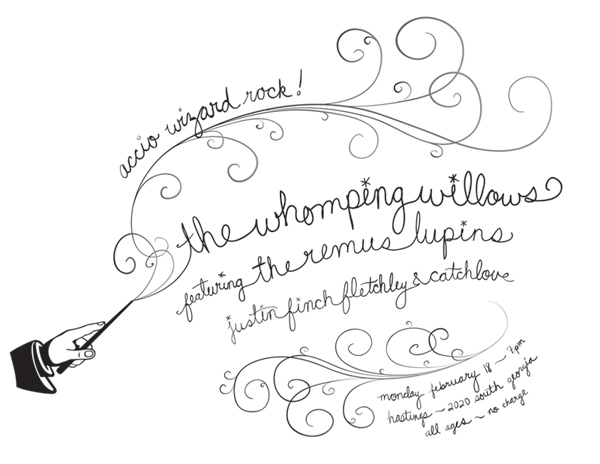 accio wizard rock!
the whomping willows
featuring the remus lupins
justin finch fletchley & catchlove
monday february 18 ~ 7pm
hastings ~ 2020 south georgia
all ages ~ no charge